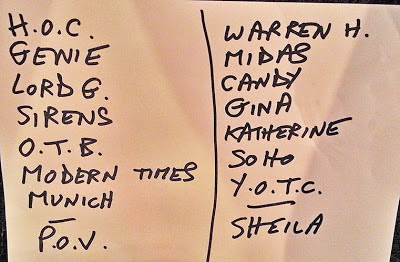 H.O.C.
GENIE
LORD G.
SIRENS
O.T.B.
MODERN TIMES
MUNICH
—
P.O.V.
WARREN H.
MIDAS
CANDY
GINA
KATHERINE
SOHO
Y.O.T.C.
—
SHEILA